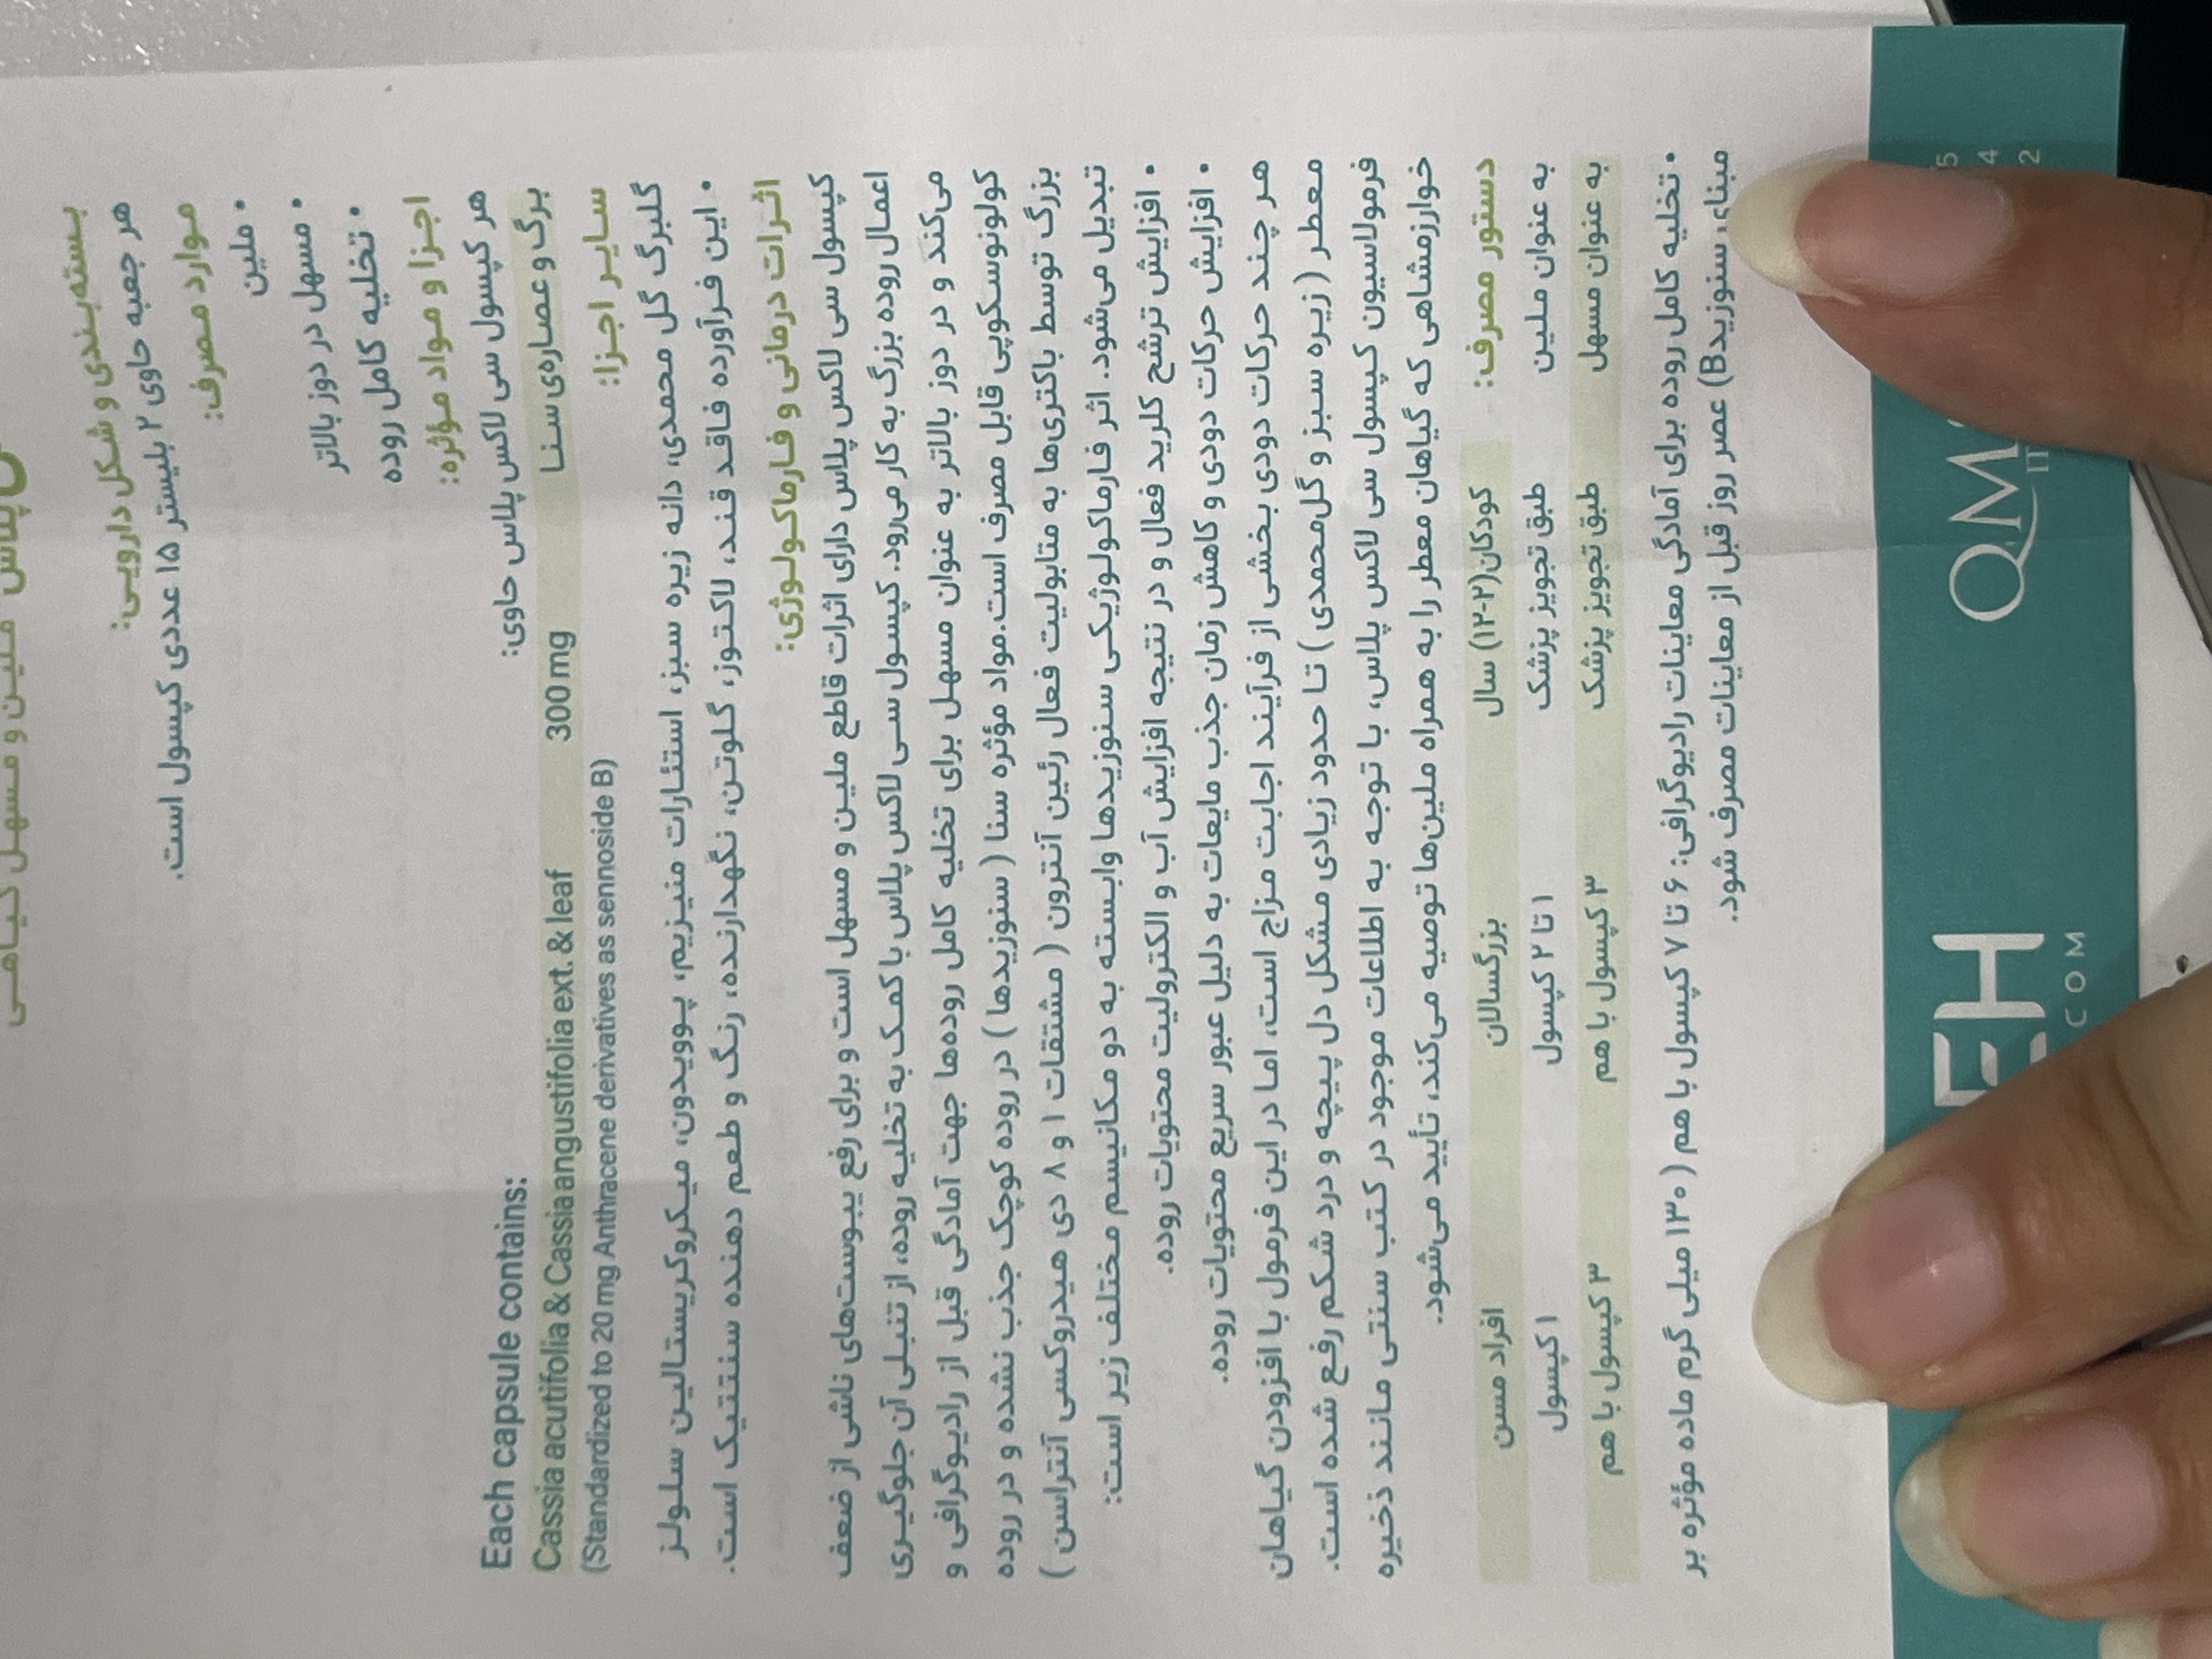 پلاس ملین و مسهل گیاهی
بسته‌بندی و شکل دارویی:
هر جعبه حاوی ۲ بلیستر ۱۵ عددی کپسول است.
موارد مصرف:
• ملین
• مسهل در دوز بالاتر
• تخلیه کامل روده
اجزا و مواد مؤثره:
هر کپسول سی لاکس پلاس حاوی:
Each capsule contains:
برگ و عصاره‌ی سنا 300 mg Cassia acutifolia & Cassia angustifolia ext. & leaf
(Standardized to 20 mg Anthracene derivatives as sennoside B)
سایر اجزا:
گلبرگ گل محمدی، دانه زیره سبز، استئارات منیزیم، پوویدون، میکروکریستالین سلولز
• این فرآورده فاقد قند، لاکتوز، گلوتن، نگهدارنده، رنگ و طعم دهنده سنتتیک است.
اثرات درمانی و فارماکولوژی:
کپسول سی لاکس پلاس دارای اثرات قاطع ملین و مسهل است و برای رفع یبوست‌های ناشی از ضعف
اعمال روده بزرگ به کار می‌رود. کپسول سی لاکس پلاس با کمک به تخلیه روده، از تنبلی آن جلوگیری
می‌کند و در دوز بالاتر به عنوان مسهل برای تخلیه کامل روده‌ها جهت آمادگی قبل از رادیوگرافی و
کولونوسکوپی قابل مصرف است.مواد مؤثره سنا ( سنوزیدها ) در روده کوچک جذب نشده و در روده
بزرگ توسط باکتری‌ها به متابولیت فعال رئین آنترون ( مشتقات ۱ و ۸ دی هیدروکسی آنتراسن )
تبدیل می‌شود. اثر فارماکولوژیکی سنوزیدها وابسته به دو مکانیسم مختلف زیر است:
• افزایش ترشح کلرید فعال و در نتیجه افزایش آب و الکترولیت محتویات روده.
• افزایش حرکات دودی و کاهش زمان جذب مایعات به دلیل عبور سریع محتویات روده.
هر چند حرکات دودی بخشی از فرآیند اجابت مزاج است، اما در این فرمول با افزودن گیاهان
معطر ( زیره سبز و گل‌محمدی ) تا حدود زیادی مشکل دل پیچه و درد شکم رفع شده است.
فرمولاسیون کپسول سی لاکس پلاس، با توجه به اطلاعات موجود در کتب سنتی مانند ذخیره
خوارزمشاهی که گیاهان معطر را به همراه ملین‌ها توصیه می‌کند، تأیید می‌شود.
دستور مصرف: کودکان(۲-۱۲) سال بزرگسالان افراد مسن
به عنوان ملین طبق تجویز پزشک ۱ تا ۲ کپسول ۱ کپسول
به عنوان مسهل طبق تجویز پزشک ۳ کپسول با هم ۳ کپسول با هم
• تخلیه کامل روده برای آمادگی معاینات رادیوگرافی: ۶ تا ۷ کپسول با هم ( ۱۳۰ میلی گرم ماده مؤثره بر
مبنای سنوزیدB) عصر روز قبل از معاینات مصرف شود.
EH
COM
QM
IT
5
4
2